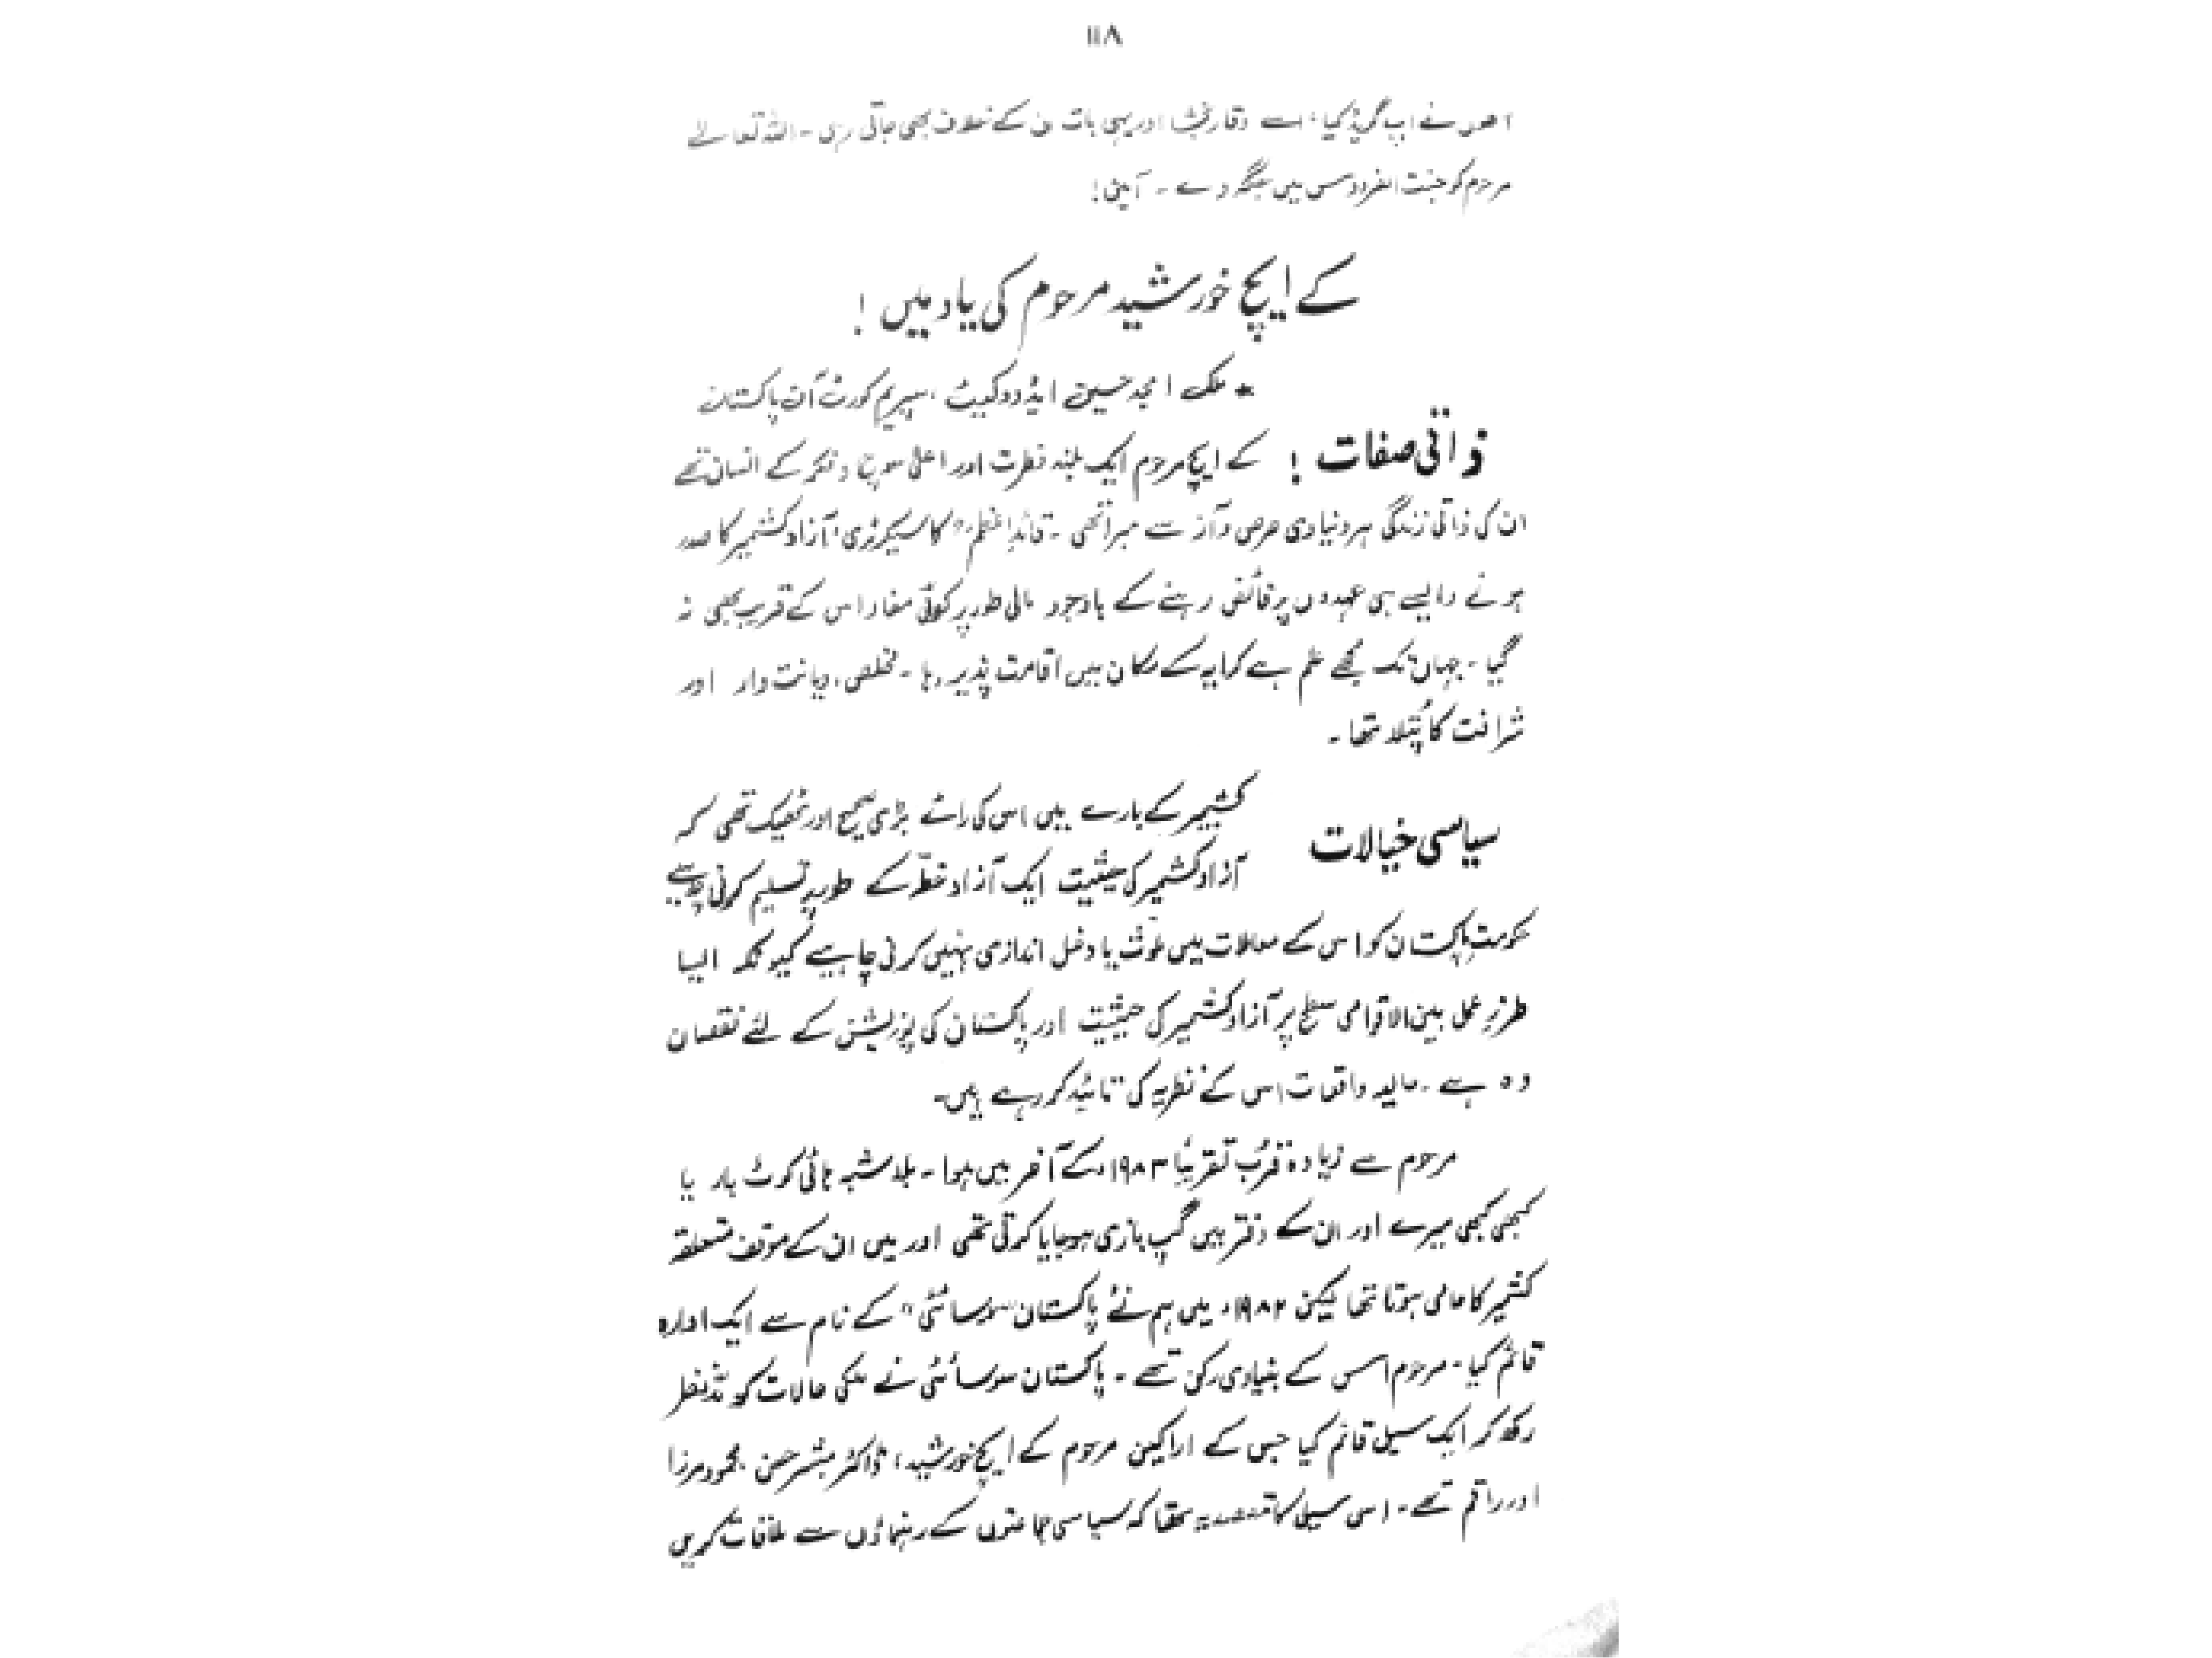 ۱۱۸
انھوں نے اپ گریڈ کیا، اسے وقار بخشا اور یہی بات ان کے خلاف بھی جاتی رہی ۔ اللہ تعالےٰ
مرحوم کو جنت الفردوس میں جگہ دے ۔ آمین!
کے ایچ خورشید مرحوم کی یاد میں !
* ملک امجد حسین ایڈووکیٹ ، سپریم کورٹ آف پاکستان
ذاتی صفات ! کے ایچ مرحوم ایک بلند فطرت اور اعلیٰ سوچ و فکر کے انسان تھے
ان کی ذاتی زندگی ہر دنیاوی حرص و آز سے مبرا تھی ۔ قائداعظمؒ کا سیکرٹری، آزاد کشمیر کا صدر
ہونے و ایسے ہی عہدوں پر فائض رہنے کے باوجود مالی طور پر کوئی مفاد اس کے قریب بھی نہ
گیا ۔ جہاں تک مجھے علم ہے کرایہ کے مکان میں اقامت پذیر رہا ۔ مخلص، دیانت دار اور
شرافت کا پُتلا تھا ۔
سیاسی خیالات کشمیر کے بارے میں اس کی رائے بڑی صحیح اور ٹھیک تھی کہ
آزاد کشمیر کی حیثیت ایک آزاد خطّہ کے طور پر تسلیم کرنی چاہیے
حکومت پاکستان کو اس کے معاملات میں ملوث یا دخل اندازی نہیں کرنی چاہیے کیونکہ ایسا
طرزِ عمل بین الاقوامی سطح پر آزاد کشمیر کی حیثیت اور پاکستان کی پوزیشن کے لئے نقصان
دہ ہے ۔ حالیہ واقعات اس کے نظریہ کی تائید کر رہے ہیں۔
مرحوم سے زیادہ قرُب تقریباً ۱۹۸۳ء کے آخر میں ہوا ۔ بلاشبہ ہائی کورٹ بار یا
کبھی کبھی میرے اور ان کے دفتر میں گپ بازی ہو جایا کرتی تھی اور میں ان کے موقف متعلقہ
کشمیر کا حامی ہوتا تھا لیکن ۱۹۸۲ء میں ہم نے پاکستان "سوسائٹی" کے نام سے ایک ادارہ
قائم کیا ۔ مرحوم اس کے بنیادی رکن تھے ۔ پاکستان سوسائٹی نے ملکی حالات کو مدِّنظر
رکھ کر ایک سیل قائم کیا جس کے اراکین مرحوم کے ایچ خورشید، ڈاکٹر مبشر حسن ، محمود مرزا
اور راقم تھے ۔ اس سیل کا مقصد یہ تھا کہ سیاسی جماعتوں کے رہنماؤں سے ملاقات کریں